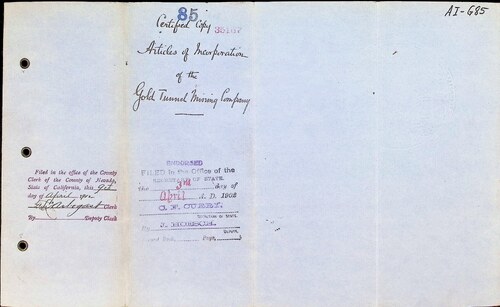 AI-G85
85
Certified Copy
Articles of Incorporation
of the
Gold Tunnel Mining Company
ENDORSED
FILED in the Office of the
SECRETARY OF STATE,
the 3rd day of
April A. D. 1902
C. F. CURRY,
SECRETARY OF STATE.
By J. HOESCH,
DEPUTY.
Filed in the office of the County
Clerk of the County of Nevada,
State of California, this 9th
day of April 190
Clerk
By Deputy Clerk